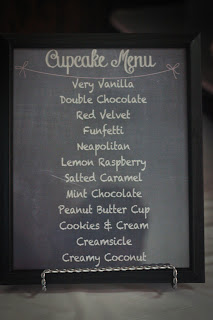 Cupcake Menu
Very Vanilla
Double Chocolate
Red Velvet
Funfetti
Neapolitan
Lemon Raspberry
Salted Caramel
Mint Chocolate
Peanut Butter Cup
Cookies & Cream
Creamsicle
Creamy Coconut